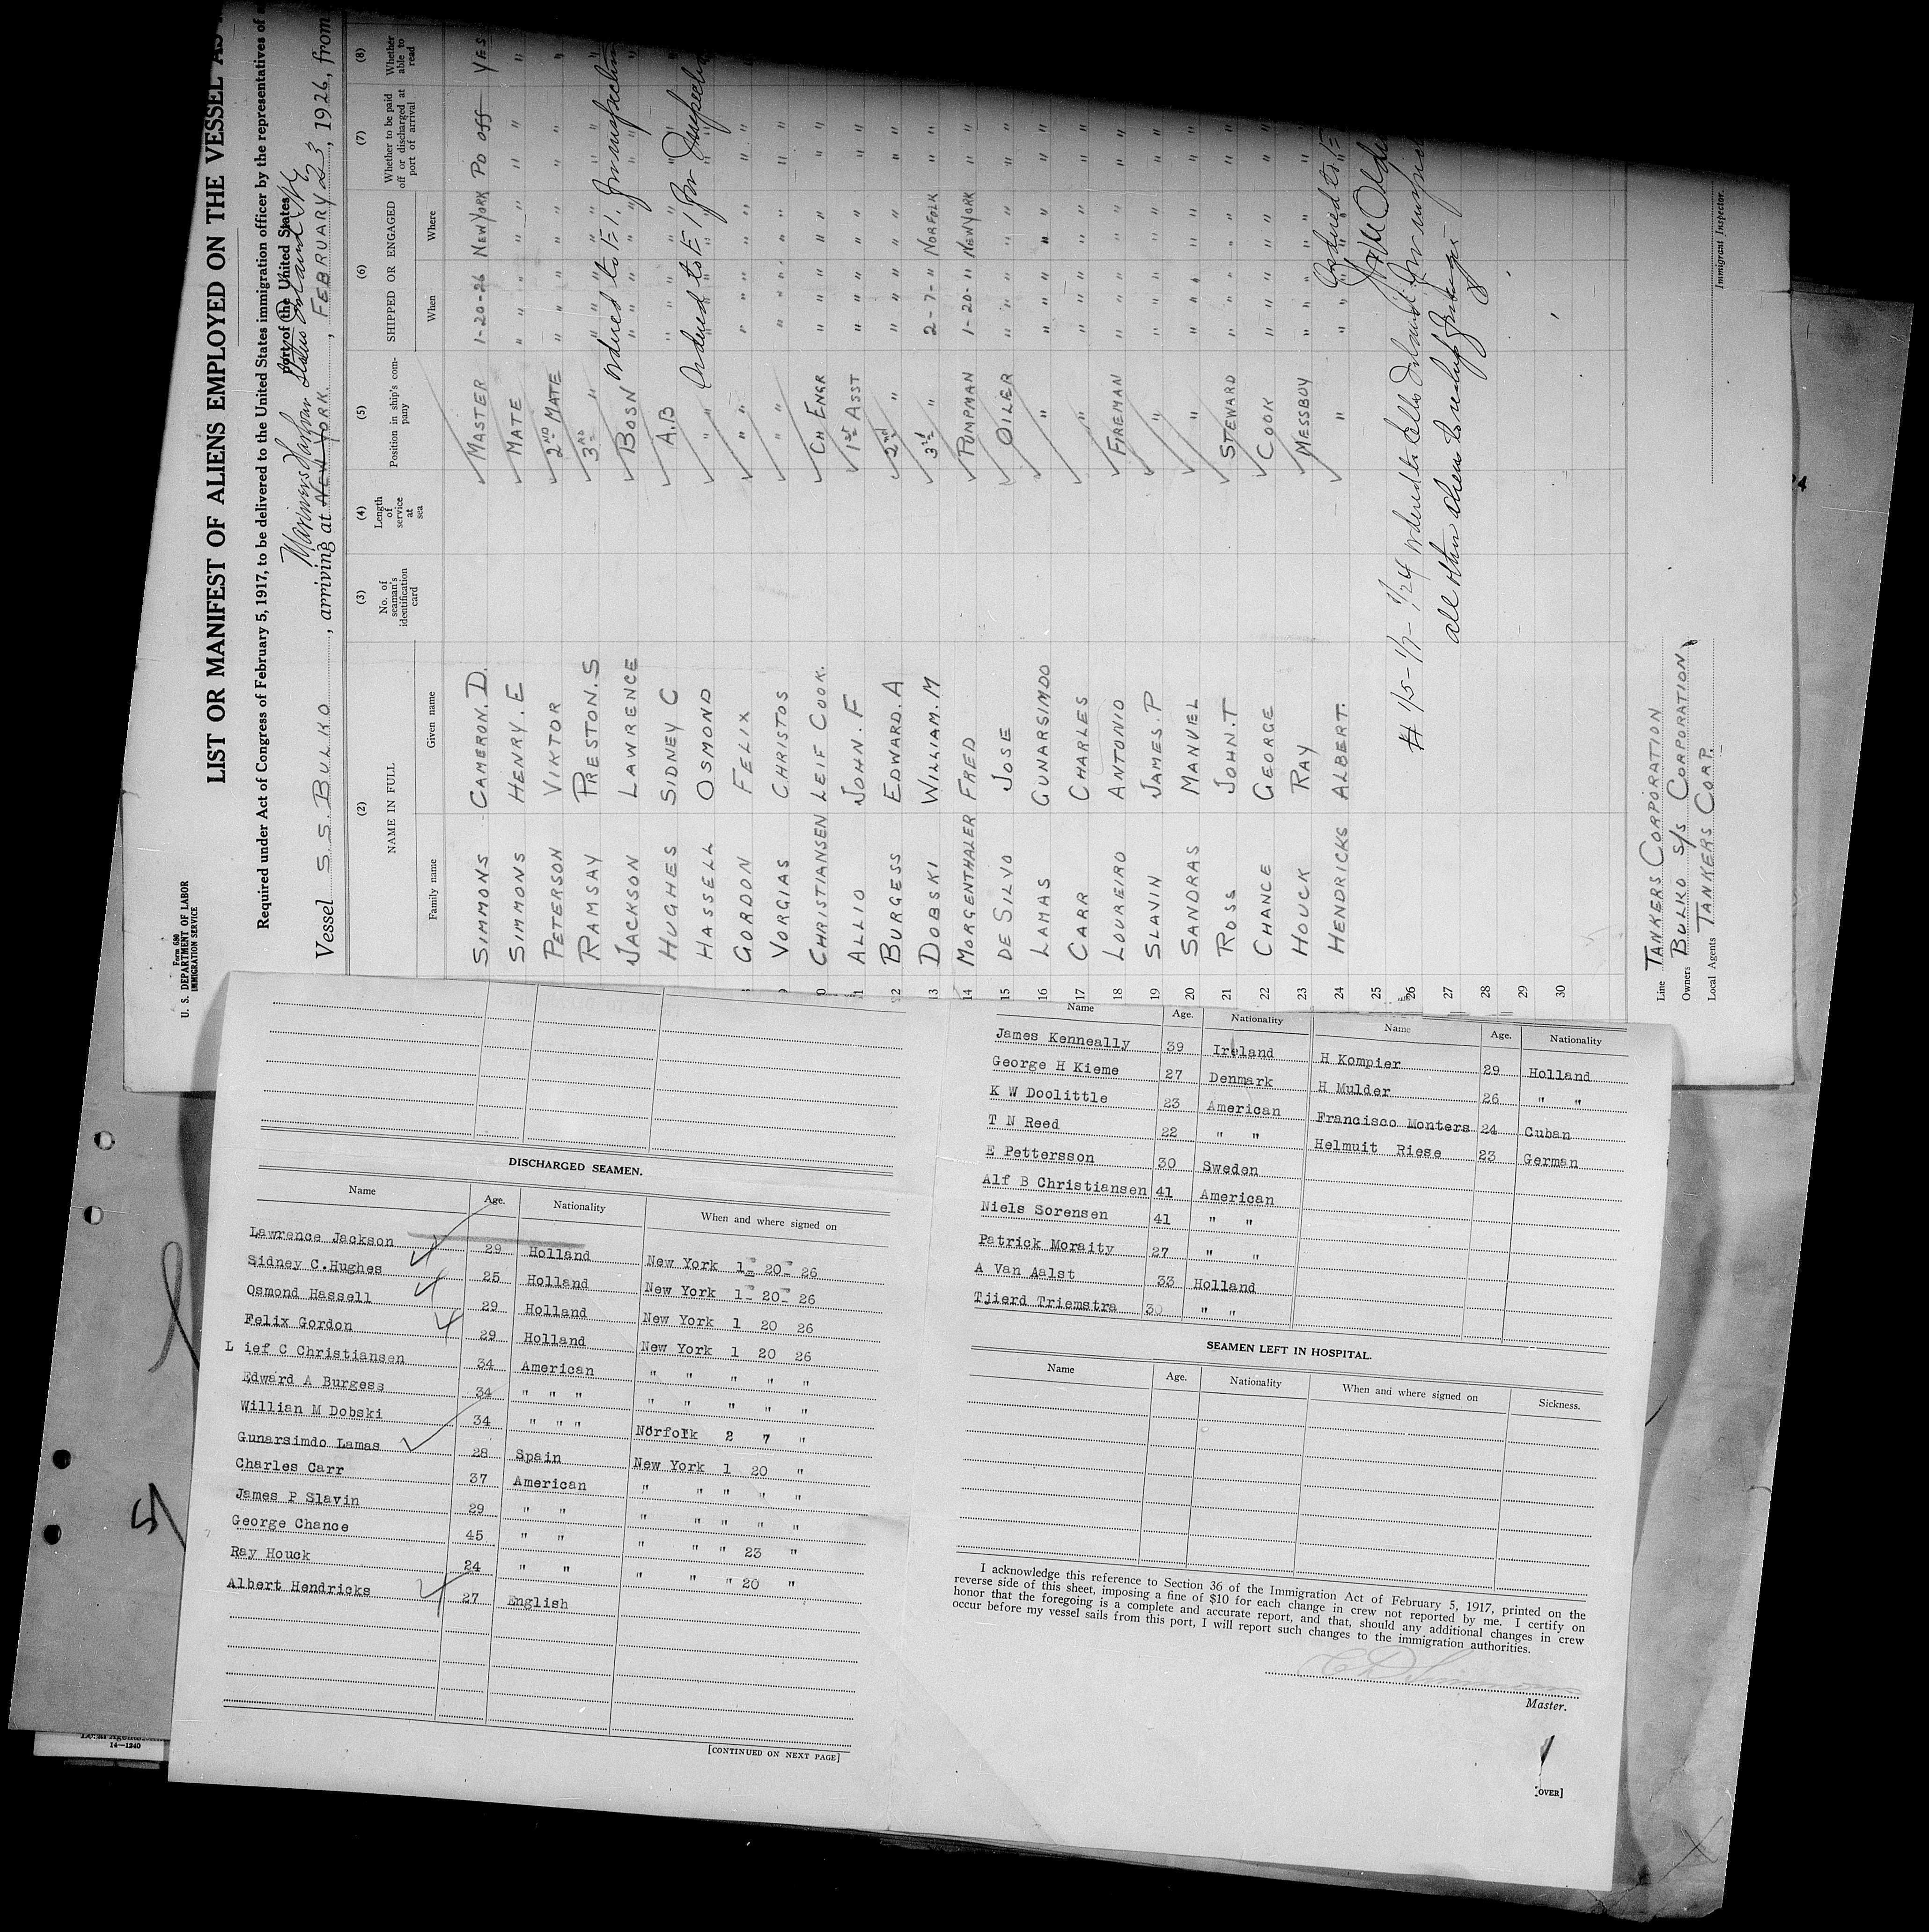 Form 680
U. S. DEPARTMENT OF LABOR
IMMIGRATION SERVICE
LIST OR MANIFEST OF ALIENS EMPLOYED ON THE VESSEL AS
Required under Act of Congress of February 5, 1917, to be delivered to the United States immigration officer by the representatives of
port of the United States
Mariners Harbor Staten Island NY
Vessel S.S. BULKO, arriving at NEW YORK, FEBRUARY 23, 1926, from
(2) (3) (4) (5) (6) (7) (8)
NAME IN FULL No. of seaman's identification card Length of service at sea Position in ship's company SHIPPED OR ENGAGED Whether to be paid off or discharged at port of arrival Whether able to read
Family name Given name When Where
SIMMONS CAMERON. D. MASTER 1-20-26 NEW YORK PD OFF YES
SIMMONS HENRY. E MATE " " " " " "
PETERSON VIKTOR 2ND MATE " " " " " "
RAMSAY PRESTON. S 3RD " " " " " " "
JACKSON LAWRENCE BOSN " " " " " "
Ordered to E I. for inspection
HUGHES SIDNEY C A.B " " " " " "
HASSELL OSMOND " " " " " "
Ordered to E I for Inspection
GORDON FELIX " " " " " " "
VORGIAS CHRISTOS " " " " " " "
10 CHRISTIANSEN LEIF COOK. CH ENGR " " " " " "
11 ALLIO JOHN. F 1ST ASST " " " " " "
12 BURGESS EDWARD. A 2nd " " " " " " "
13 DOBSKI WILLIAM. M 3rd " 2-7- " NORFOLK " "
14 MORGENTHALER FRED PUMPMAN 1-20- " NEW YORK " "
15 DE SILVO JOSE OILER " " " " " "
16 LAMAS GUNARSIMDO " " " " " " "
17 CARR CHARLES " " " " " " "
18 LOUREIRO ANTONIO FIREMAN " " " " " "
19 SLAVIN JAMES. P " " " " " " "
20 SANDRAS MANUEL " " " " " " "
21 ROSS JOHN. T STEWARD " " " " " "
22 CHANCE GEORGE COOK " " " " " "
23 HOUCK RAY MESSBOY " " " " " "
24 HENDRICKS ALBERT. " " " Ordered to E
25
26 # 1/5 - 1/7 - 1/24 ordered to Ellis Island for inspection
27 all other aliens to reship foreign
28
29
30
Line TANKERS CORPORATION
Owners BULKO S/S CORPORATION
Local Agents TANKERS CORP.
Immigrant Inspector.
DISCHARGED SEAMEN.
Name Age. Nationality When and where signed on
Lawrence Jackson 29 Holland New York 1- 20- 26
Sidney C.Hughes 25 Holland New York 1- 20- 26
Osmond Hassell 29 Holland New York 1 20 26
Felix Gordon 29 Holland New York 1 20 26
L ief C Christiansen 34 American " " " " "
Edward A Burgess 34 " " " " " " " "
Willian M Dobski 34 " " " Norfolk 2 7 "
Gunarsimdo Lamas 28 Spain New York 1 20 "
Charles Carr 37 American " " " " "
James P Slavin 29 " " " " " " "
George Chance 45 " " " " " 23 "
Ray Houck 24 " " " " " 20 "
Albert Hendricks 27 English
[CONTINUED ON NEXT PAGE]
Name Age. Nationality Name Age. Nationality
James Kenneally 39 Ireland H Kompier 29 Holland
George H Kieme 27 Denmark H Mulder 26 " "
K W Doolittle 23 American Francisco Monters 24 Cuban
T N Reed 22 " " Helmuit Riese 23 German
E Pettersson 30 Sweden
Alf B Christiansen 41 American
Niels Sorensen 41 " "
Patrick Moraity 27 " "
A Van Aalst 33 Holland
Tjierd Triemstra 30 " "
SEAMEN LEFT IN HOSPITAL.
Name Age. Nationality When and where signed on Sickness.
I acknowledge this reference to Section 36 of the Immigration Act of February 5, 1917, printed on the
reverse side of this sheet, imposing a fine of $10 for each change in crew not reported by me. I certify on
honor that the foregoing is a complete and accurate report, and that, should any additional changes in crew
occur before my vessel sails from this port, I will report such changes to the immigration authorities.
C D Simmons
Master.
[OVER]
Local Agents
14—1240